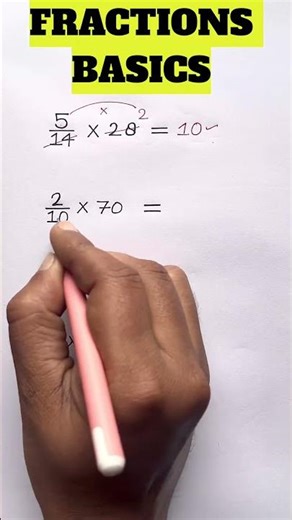 FRACTIONS
BASICS
5/14 × 28 2 = 10✓
×
2/10 × 70 =